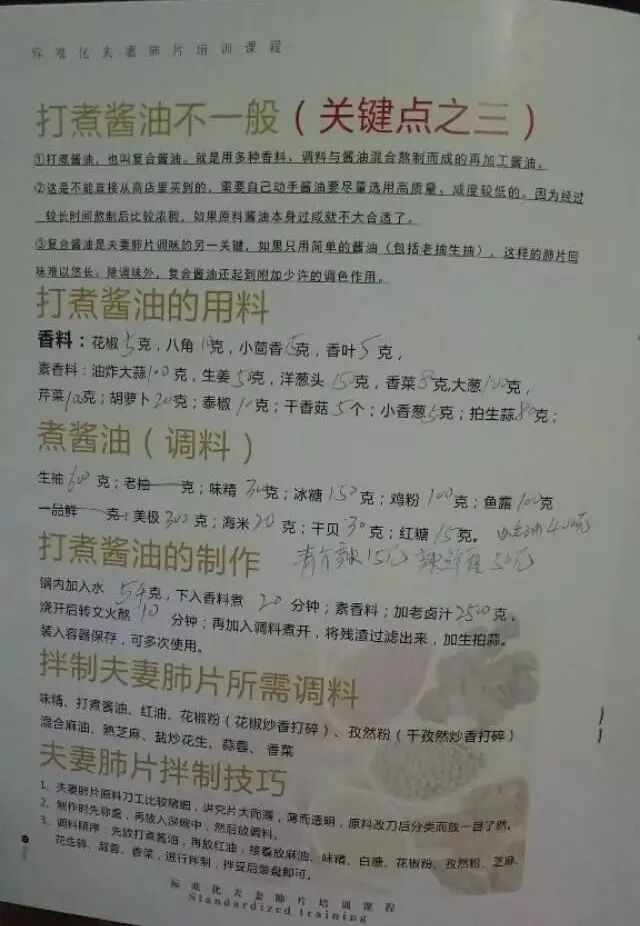 标准化夫妻肺片培训课程
打煮酱油不一般（关键点之三）
①打煮酱油，也叫复合酱油。就是用多种香料、调料与酱油混合熬制而成的再加工酱油。
②这是不能直接从商店里买到的，需要自己动手酱油要尽量选用高质量、咸度较低的。因为经过
较长时间熬制后比较浓稠，如果原料酱油本身过咸就不大合适了。
③复合酱油是夫妻肺片调味的另一关键，如果只用简单的酱油（包括老抽生抽），这样的肺片回
味难以悠长。除调味外，复合酱油还起到附加少许的调色作用。
打煮酱油的用料
香料：花椒5克，八角克，小茴香克，香叶5克，
素香料：油炸大蒜100克，生姜50克，洋葱头150克，香菜8克大葱克，
芹菜100克；胡萝卜20克；泰椒10克；干香菇5个；小香葱克；拍生蒜80克；
煮酱油（调料）
生抽600克；老抽克；味精30克；冰糖150克；鸡粉100克；鱼露100克
一品鲜克；美极300克；海米20克；干贝30克；红糖15克。400克
打煮酱油的制作 15克 50克
锅内加入水5千克，下入香料煮20分钟；素香料；加老卤汁2500克，
烧开后转文火熬10分钟；再加入调料煮开，将残渣过滤出来，加生拍蒜。
装入容器保存，可多次使用。
拌制夫妻肺片所需调料
味精、打煮酱油、红油、花椒粉（花椒炒香打碎）、孜然粉（干孜然炒香打碎）
混合麻油、熟芝麻、盐炒花生、蒜蓉、香菜
夫妻肺片拌制技巧
1、夫妻肺片原料刀工比较精细，讲究片大而薄，薄而透明，原料改刀后分类而放一目了然。
2、制作时先称重，再放入深碗中，然后放调料。
3、调料顺序：先放打煮酱油，再放红油，接着放麻油、味精、白糖、花椒粉、孜然粉、芝麻、
花生碎、蒜蓉、香菜，进行拌制，拌妥后装盘即可。
标准化夫妻肺片培训课程
Standardized training